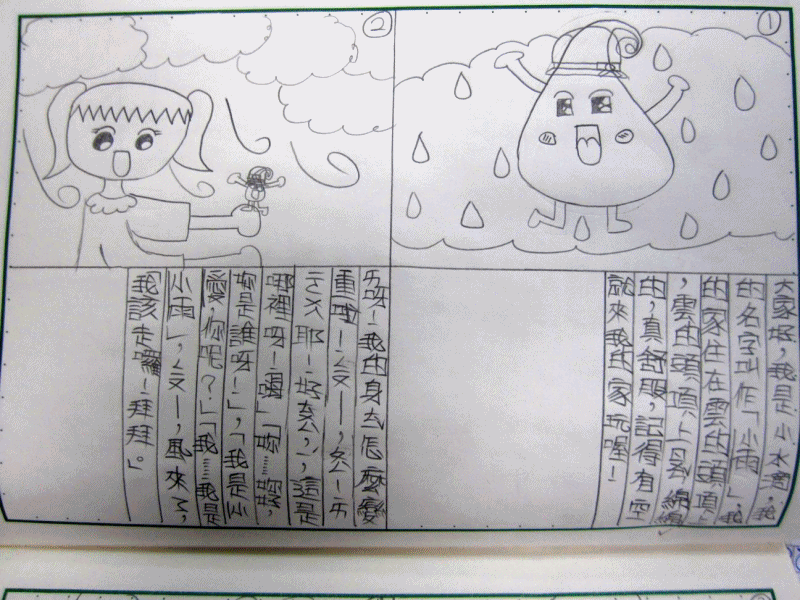 ①
大家好，我是小水滴，我
的名字叫作「小雨」，我
的家住在雲的頭頂上
，雲的頭頂上綿綿
的，真舒服，記得有空
就來我的家玩喔！
②
呀！我的身怎麼變
重
耶！好，這是
哪裡呀！」「妳……
妳是誰呀！」，「我是小
愛，你呢？」「我……我是
小雨」，風來了，
我該走囉！拜拜」。